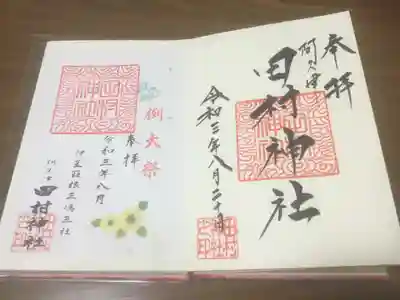 奉拝
阿久津
田村神社
令和三年八月二十日
例大祭
奉拝
令和三年八月
伊豆箱根三嶋三社
田村神社